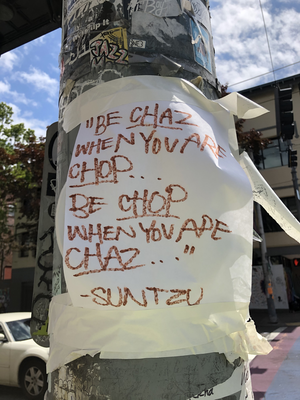 JAZZ
"BE CHAZ
WHEN YOU ARE
CHOP...
BE CHOP
WHEN YOU ARE
CHAZ..."
-SUN TZU